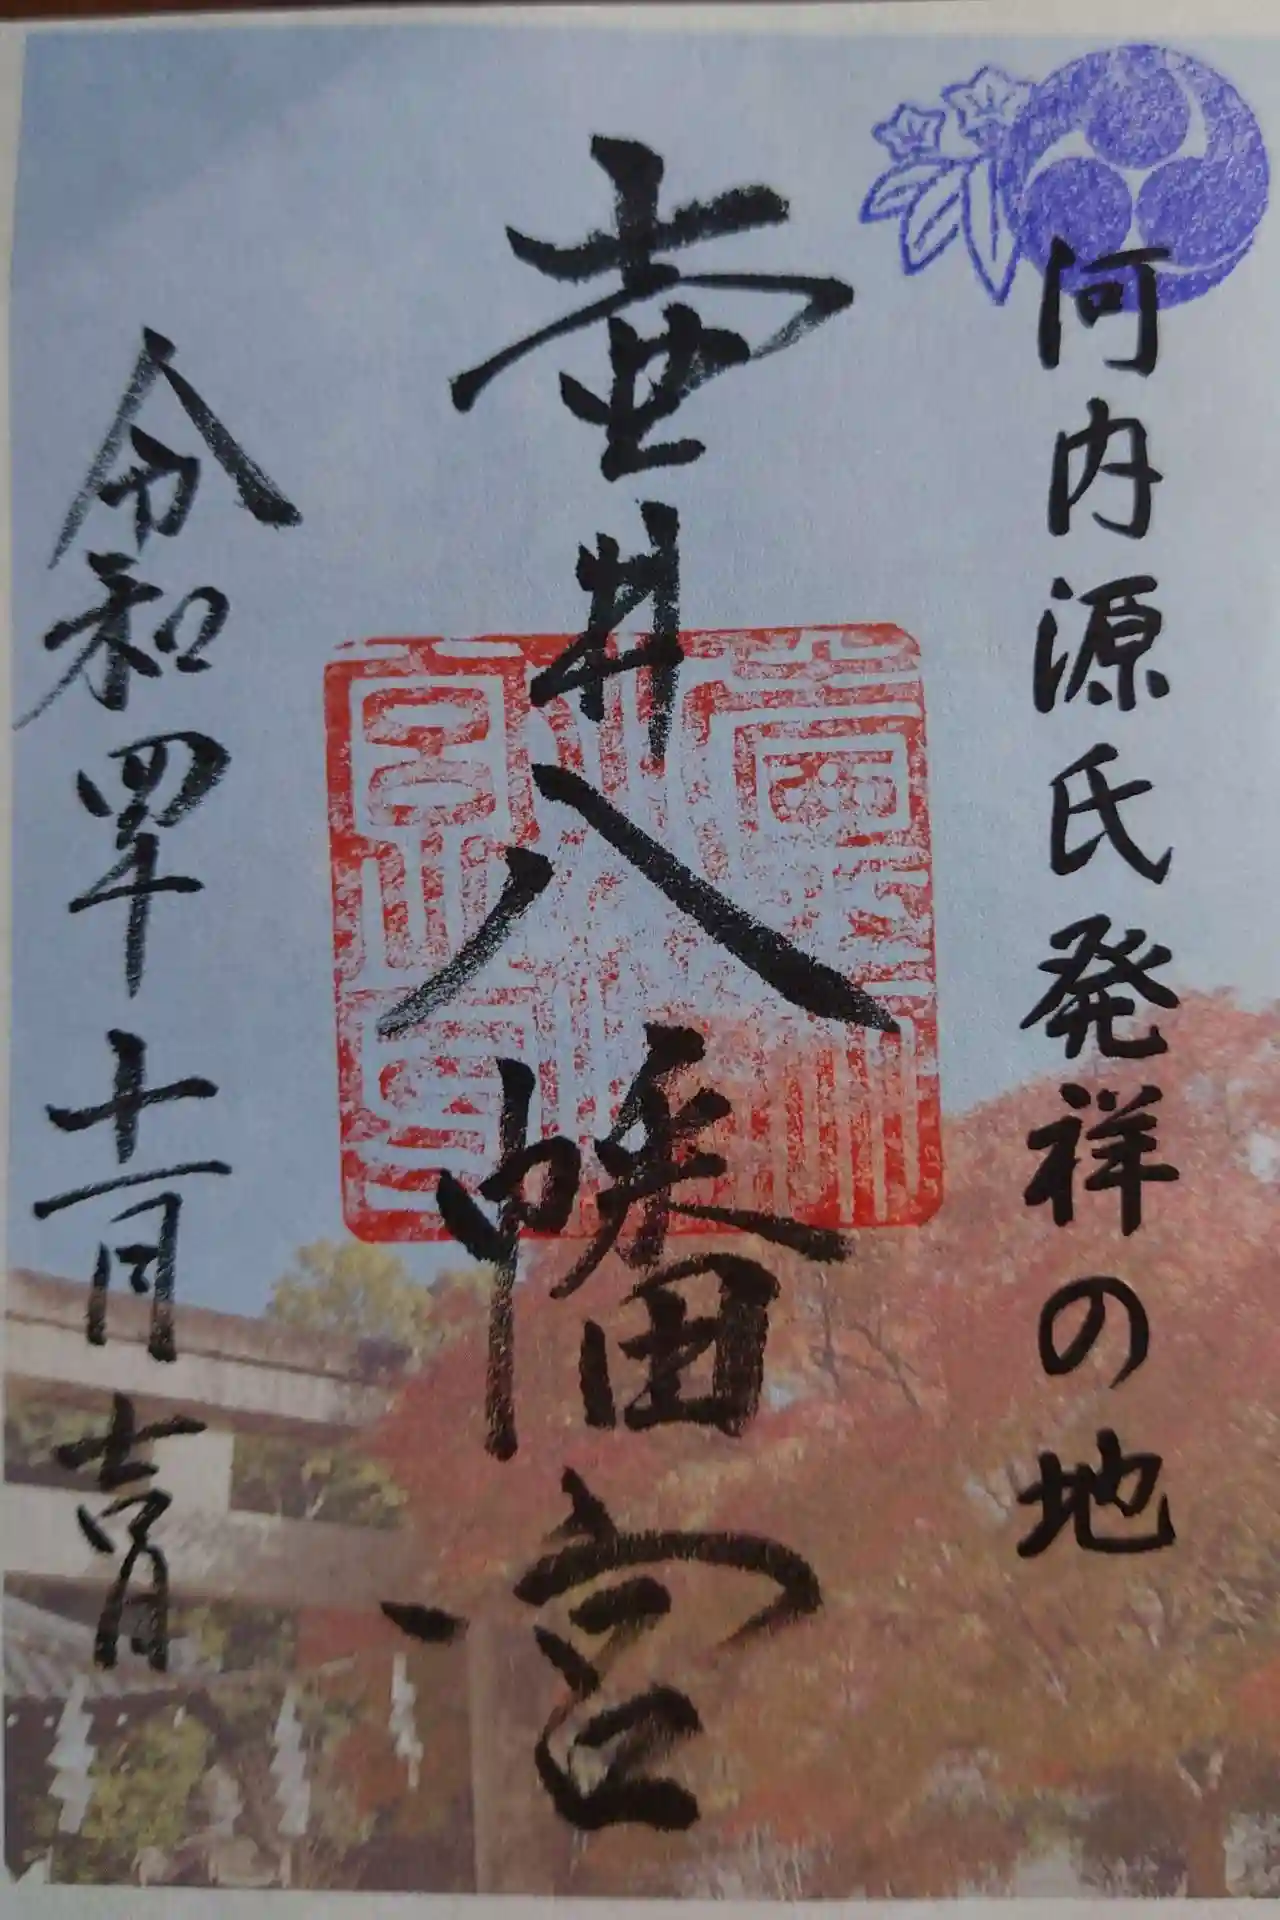 河内源氏発祥の地
壷井八幡宮
令和四年十一月吉月